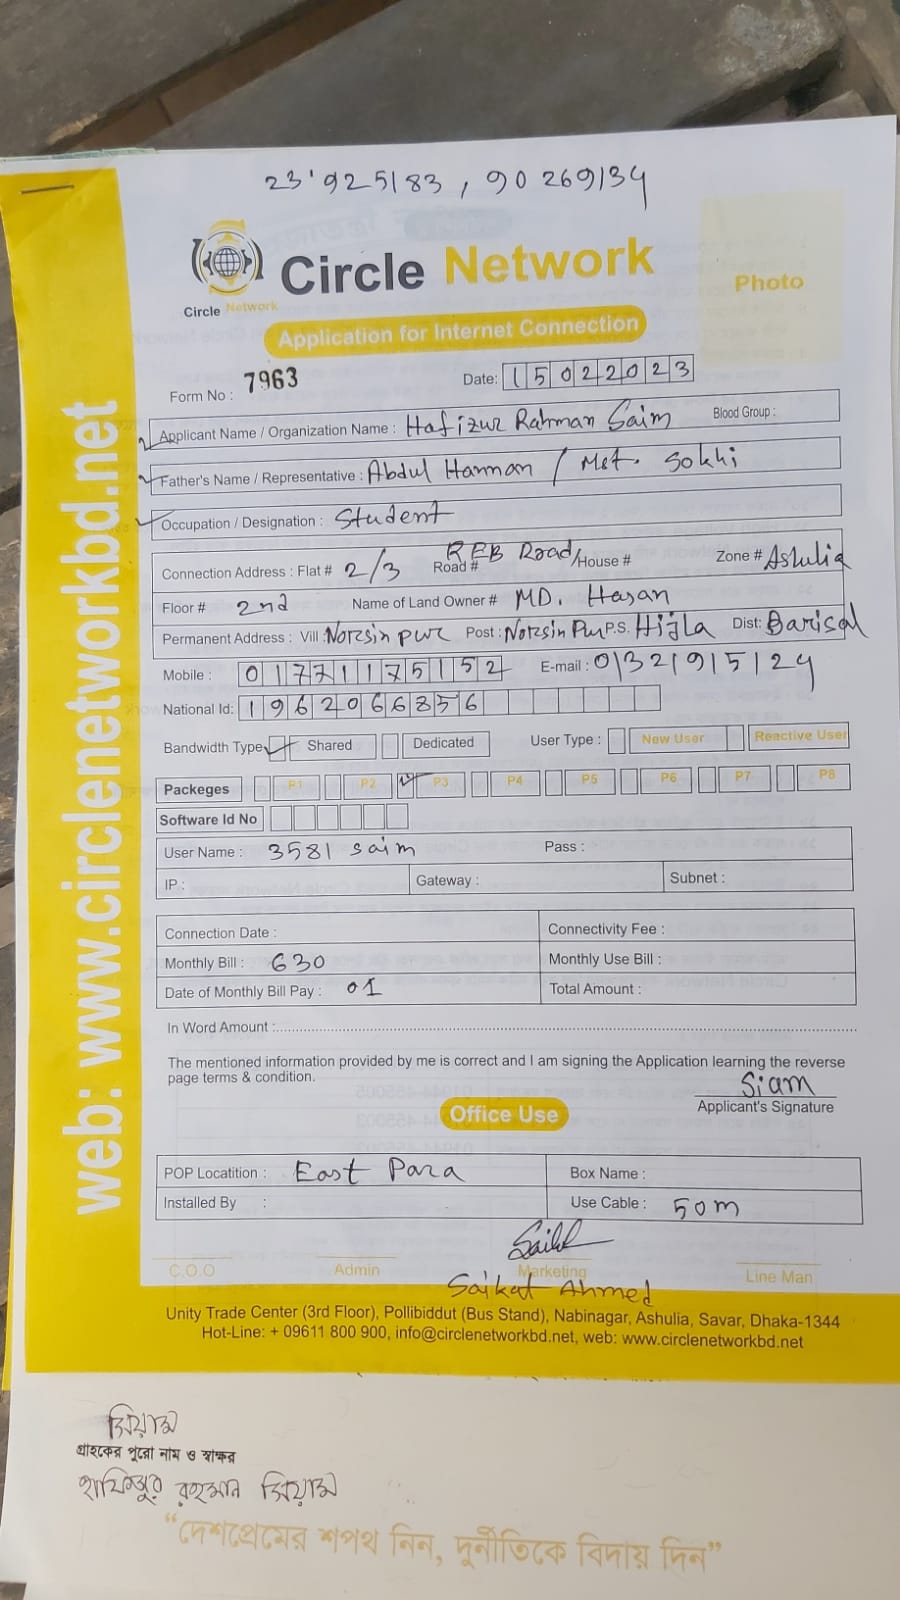 23'925183, 90269134
Circle Network
Circle Network
Photo
Application for Internet Connection
Form No : 7963
Date: 15022023
Applicant Name / Organization Name : Hafizur Rahman Saim Blood Group :
Father's Name / Representative : Abdul Hannan / Mst. Sokhi
Occupation / Designation : Student
Connection Address : Flat # 2/3 Road # REB Road /House # Zone # Ashulia
Floor # 2nd Name of Land Owner # MD. Hasan
Permanent Address : Vill: Norsinpur Post : Norsin Pur P.S. Hijla Dist: Barisal
Mobile : 01771175152 E-mail : 01321915124
National Id: 1962066856
Bandwidth Type Shared Dedicated User Type : New User Reactive User
Packeges P1 P2 P3 P4 P5 P6 P7 P8
Software Id No
User Name : 3581 saim Pass :
IP : Gateway : Subnet :
Connection Date : Connectivity Fee :
Monthly Bill : 630 Monthly Use Bill :
Date of Monthly Bill Pay : 01 Total Amount :
In Word Amount :
The mentioned information provided by me is correct and I am signing the Application learning the reverse
page terms & condition.
Siam
Applicant's Signature
Office Use
POP Locatition : East Para Box Name :
Installed By : Use Cable : 50m
C.O.O Admin Marketing Line Man
Saikat Ahmed
Unity Trade Center (3rd Floor), Pollibiddut (Bus Stand), Nabinagar, Ashulia, Savar, Dhaka-1344
Hot-Line: + 09611 800 900, info@circlenetworkbd.net, web: www.circlenetworkbd.net
web: www.circlenetworkbd.net
সিয়াম
গ্রাহকের পুরো নাম ও স্বাক্ষর
হাফিজুর রহমান সিয়াম
“দেশপ্রেমের শপথ নিন, দুর্নীতিকে বিদায় দিন”